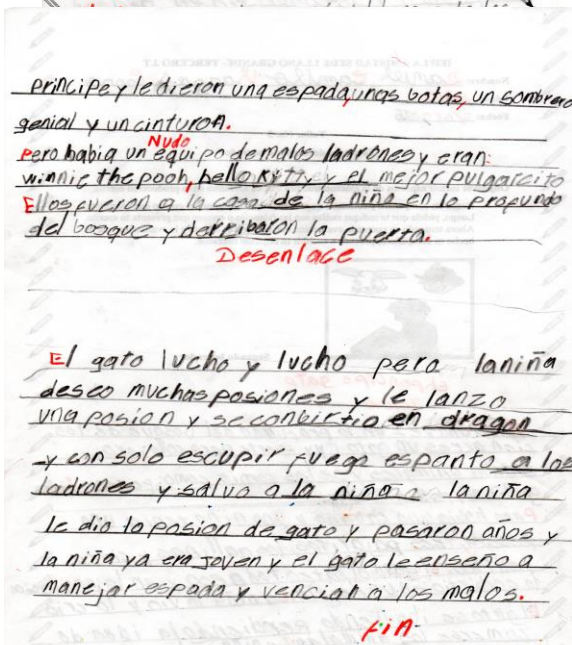 principe y le dieron una espada, unas botas, un sombrero
genial y un cinturon.
Nudo
Pero habia un equipo de malos ladrones y eran:
winnie the pooh, hello kytty y el mejor pulgarcito
Ellos fueron a la casa de la niña en lo profundo
del bosque y derribaron la puerta.
Desenlace
El gato lucho y lucho pero laniña
deseo muchas posiones y le lanzo
una posion y se conbirtio en dragon
y con solo escupir fuego espanto a los
ladrones y salvo a la niña laniña
le dio la posion de gato y pasaron años y
la niña ya era joven y el gato le enseño a
manejar espada y vencian a los malos.
Fin